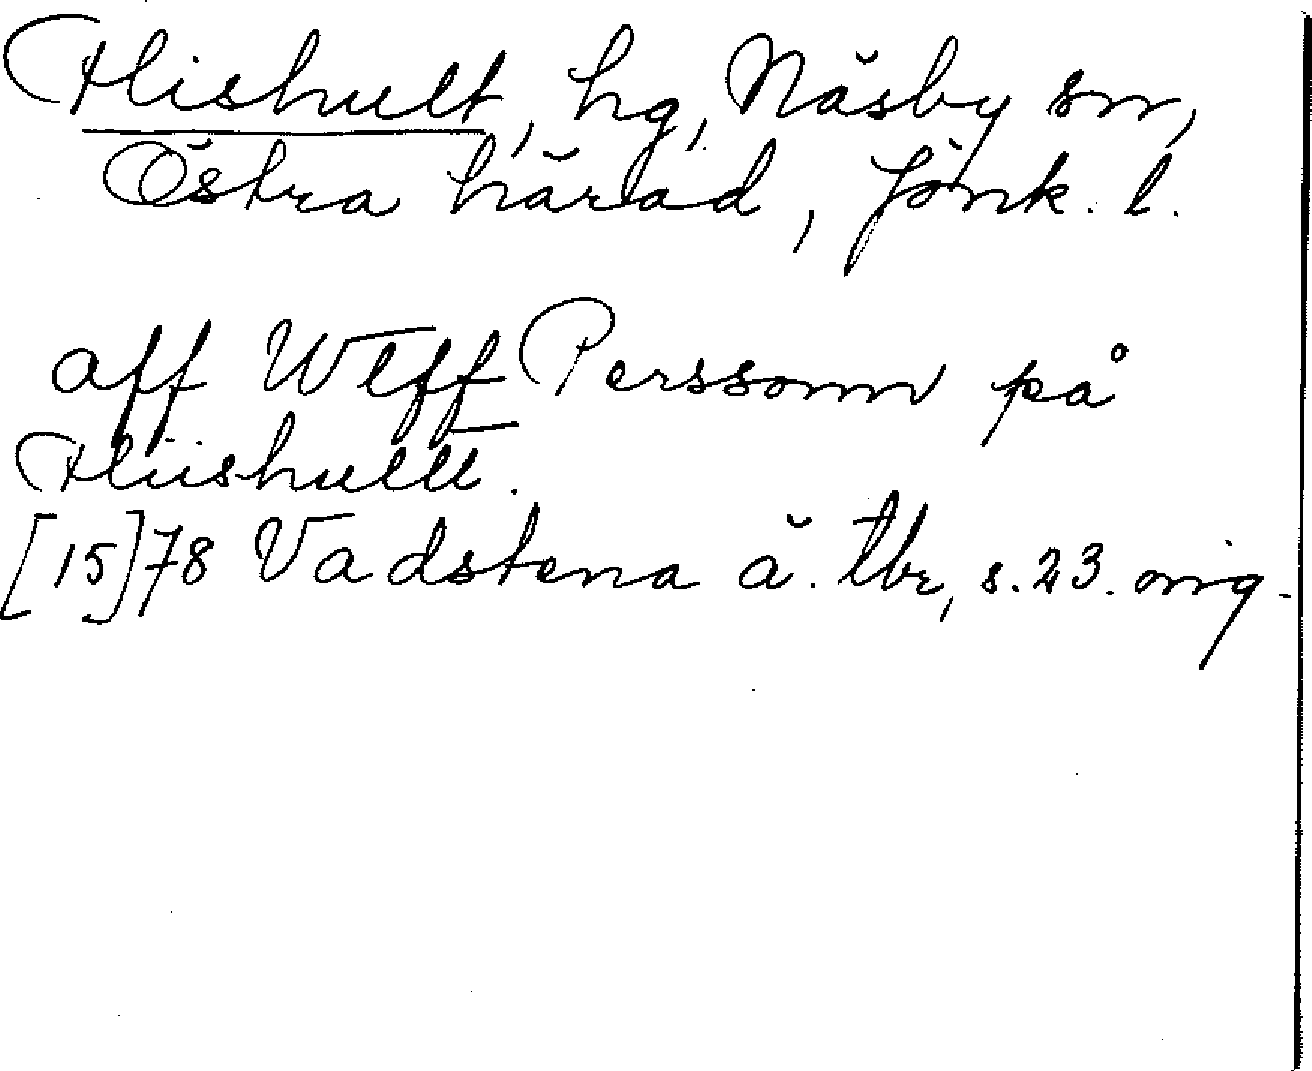 Hishult, hg, Näsby sn,
Östra härad, Jönk. l.
aff Wlff Perssonn på
Hiishulltt.
[15]78 Vadstena ä. tbr, s. 23. orig.